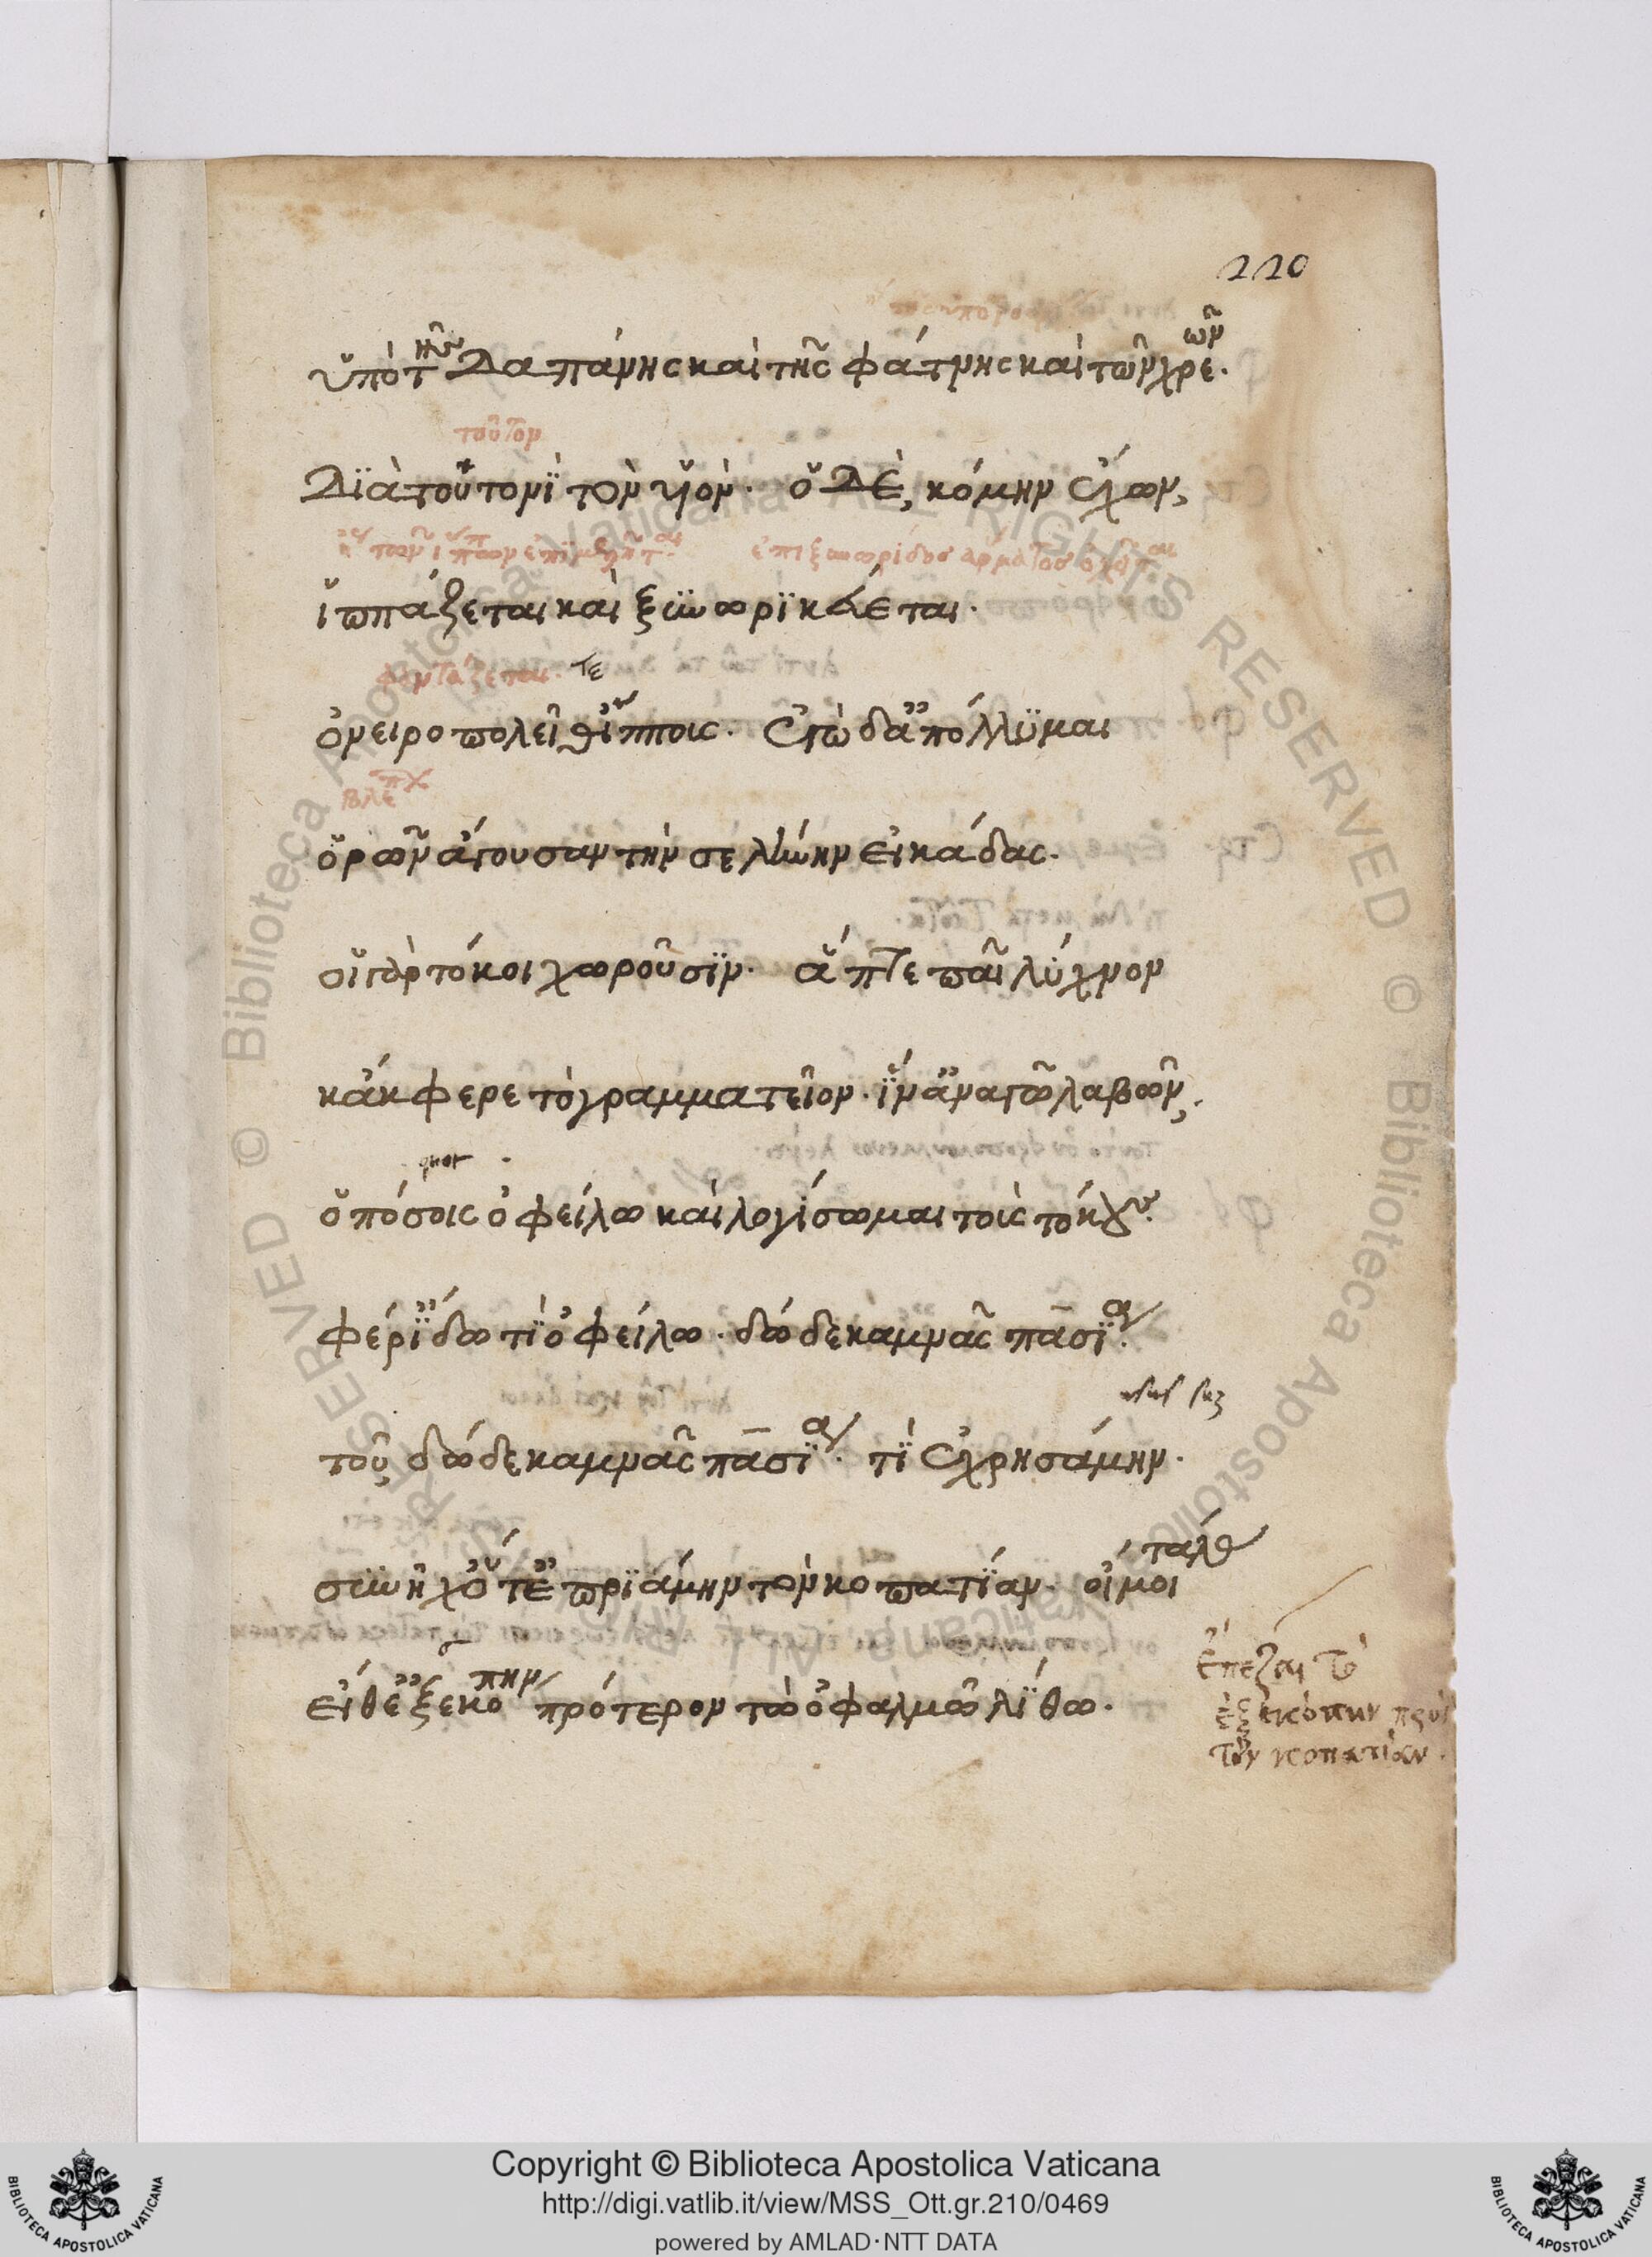 220
ὑπὸ τῆς δαπάνης καὶ τῆς φάτνης καὶ τῶν χρεῶν.
τοῦτον
διὰ τουτονὶ τὸν υἱόν. ὁ δὲ, κόμην ἔχων,
ἱππάζεται καὶ ξυνωρικεύεται.
φαντάζεται. τε
ὀνειροπολεῖ θ' ἵππους. ἐγὼ δ' ἀπόλλυμαι
ὁρῶν ἄγουσαν τὴν σελήνην εἰκάδας.
οἱ γὰρ τόκοι χωροῦσιν. ἅπτε παῖ λύχνον
κἄκφερε τὸ γραμματεῖον. ἵν' ἀναγνῶ λαβών,
ὁπόσοις ὀφείλω καὶ λογίσωμαι τοὺς τόκους.
φέρ' ἴδω τί ὀφείλω. δώδεκα μνᾶς πασίᾳ.
τοῦ δώδεκα μνᾶς πασίᾳ. τί ἐχρησάμην.
ταλας
συνῆχ' ὅτ' ἐπριάμην τὸν κοππατίαν. οἴμοι
εἴθ' ἐξεκόπην πρότερον τὸ ὀφαλμὸν λίθω.
ἔπεζαι τὸ
ἐξεκόπην πρὸς
τὸν κοπατίαν.
Copyright © Biblioteca Apostolica Vaticana
http://digi.vatlib.it/view/MSS_Ott.gr.210/0469
powered by AMLAD·NTT DATA